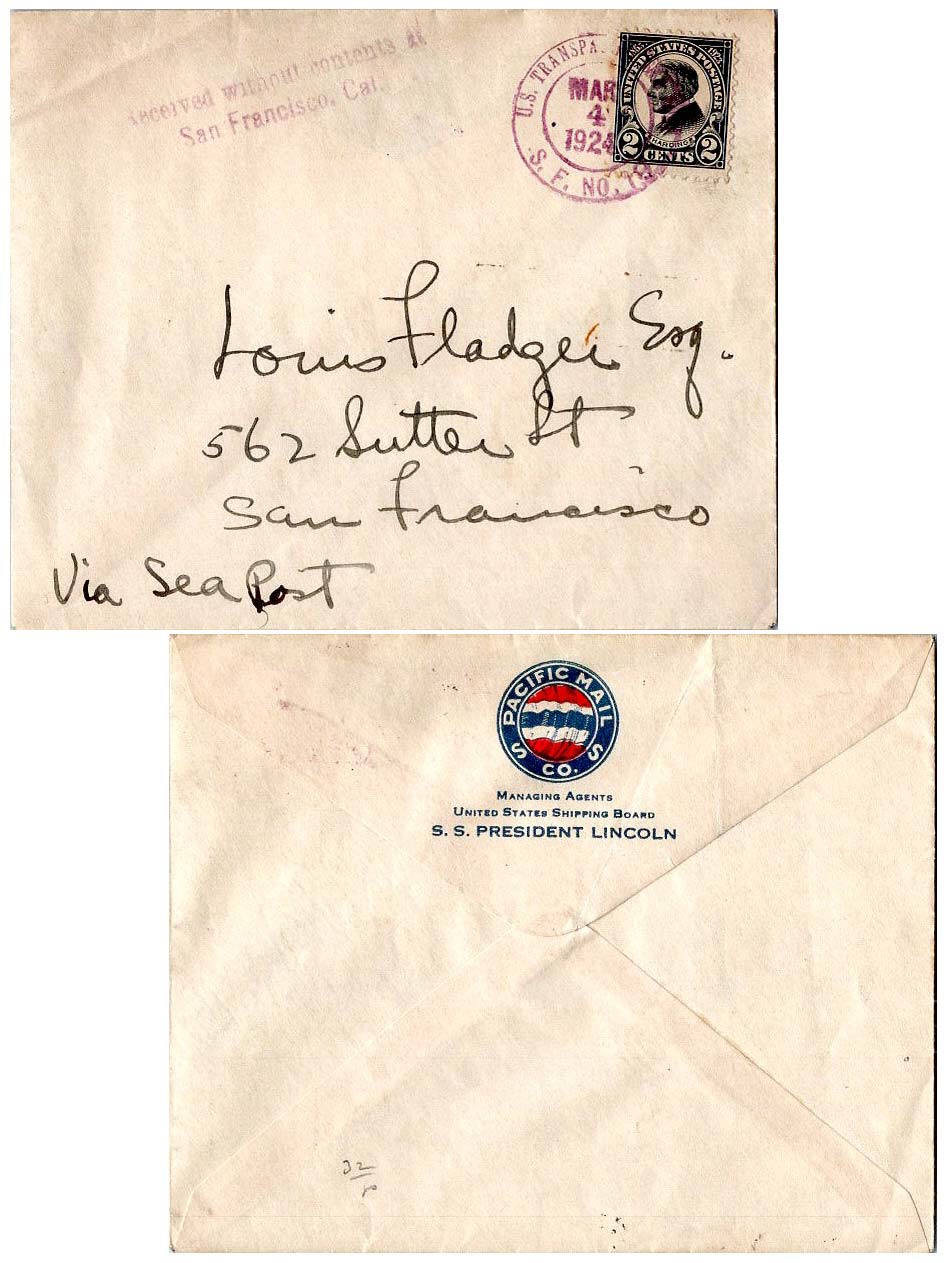 Received without contents at
San Francisco, Cal.
U.S. TRANSPA.
MAR
4
1924
S. F. NO.
1865 1923
UNITED STATES POSTAGE
HARDING
2 CENTS 2
Louis Fladger Esq.
562 Sutter St
San Francisco
Via Sea Post
PACIFIC MAIL
S S
CO.
MANAGING AGENTS
UNITED STATES SHIPPING BOARD
S. S. PRESIDENT LINCOLN
32